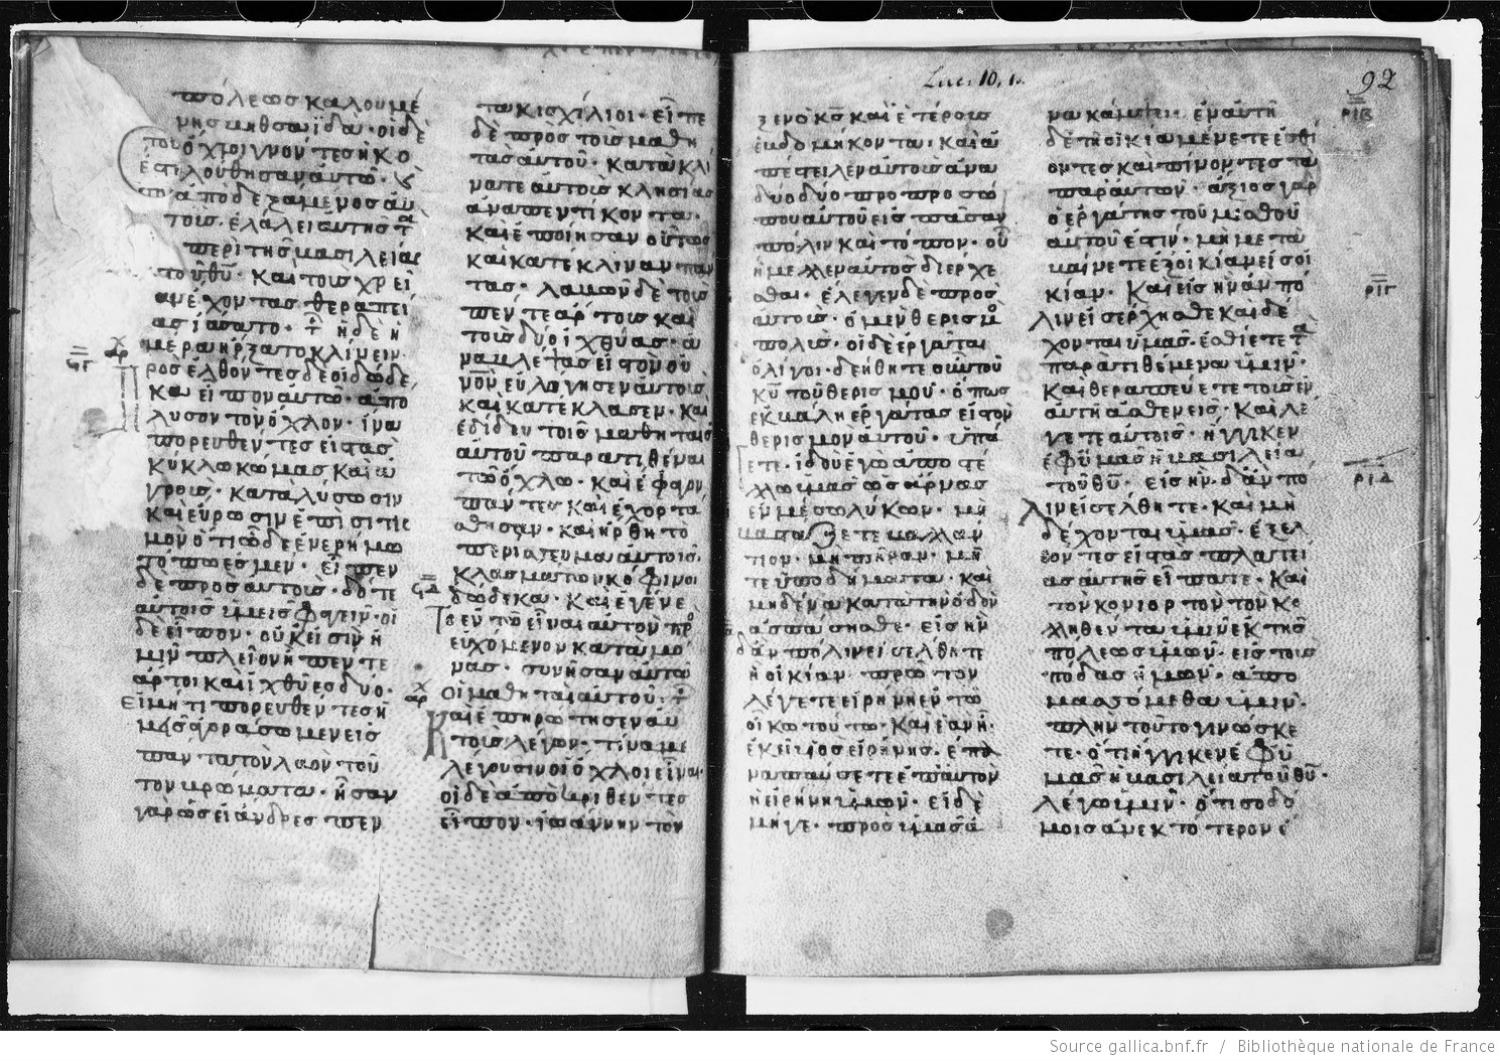 πόλεως καλουμέ
νης βηθσαϊδά· οἱ δὲ
ὄχλοι γνόντες ἠκο
λούθησαν αὐτῶ·
ἀποδεξάμενος αὐ
τοὺς ἐλάλει αὐτοῖς
περὶ τῆς βασιλείας
τοῦ θυ· καὶ τοὺς χρεί
αν ἔχοντας θεραπεί
ας ἰάσατο· ἡ δὲ ἡ
μέρα ἤρξατο κλίνειν·
Προσελθόντες δὲ οἱ δώδε
κα εἶπον αὐτῶ· ἀπό
λυσον τὸν ὄχλον· ἵνα
πορευθέντες εἰς τὰς
κύκλω κώμας καὶ ἀ
γροὺς· καταλύσωσιν
καὶ εὕρωσιν ἐπισιτισ
μόν ὅτι ὧδε ἐν ἐρήμω
τόπω ἐσμέν· εἶπεν
δὲ πρὸς αὐτούς· δότε
αὐτοῖς ὑμεῖς φαγεῖν· οἱ
δὲ εἶπον· οὐκ εἰσὶν ἡ
μῖν πλεῖον ἢ πέντε
ἄρτοι καὶ ἰχθύες δύο·
εἰ μήτι πορευθέντες ἡ
μεῖς ἀγοράσωμεν εἰς
πάντα τὸν λαὸν τοῦ
τον βρώματα· ἦσαν
γὰρ ὡσεὶ ἄνδρες πεν
τακισχίλιοι· εἶπε
δὲ πρὸς τοὺς μαθη
τὰς αὐτοῦ· κατακλί
νατε αὐτοὺς κλησίας
ἀνὰ πεντίκοντα·
καὶ ἐποίησαν οὕτως
καὶ κατέκλιναν παν
τας· λαβὼν δὲ τοὺς
πέντε ἄρτους καὶ
τοὺς δύο ἰχθύας· ἀ
ναβλέψας εἰς τὸν οὐ
νὸν εὐλόγησεν αὐτοὺς
καὶ κατέκλασεν· καὶ
ἐδίδου τοῖς μαθηταῖς
αὐτοῦ παρατιθέναι
τῶ ὄχλω· καὶ ἔφαγον
πάντες καὶ ἐχορτά
σθησαν· καὶ ἤρθη τὸ
περισσεῦμα αὐτοῖς·
κλασμάτων κόφινοι
δώδεκα· Καὶ ἐγένε
το ἐν τῶ εἶναι αὐτὸν πρ
ευχόμενον καταμό
νας· συνῆσαν αὐτῶ
οἱ μαθηταὶ αὐτοῦ·
Καὶ ἐπηρώτησεν αὐ
τοὺς λέγων· τίνα με
λέγουσιν οἱ ὄχλοι εἶναι·
οἱ δὲ ἀποκριθέντες
εἶπον· ἰωάννην τὸν
Luc. 10, 1.
92
ξεν ὁ κς καὶ ἑτέρους
ἑβδομήκοντα· καὶ ἀ
πέστειλεν αὐτοὺς ἀνὰ
δύο δύο πρὸ προσώ
που αὐτοῦ εἰς πᾶσαν
πόλιν καὶ τόπον· οὗ
ἤμελλεν αὐτὸς διέρχε
σθαι· ἔλεγεν δὲ πρὸς
αὐτούς· ὁ μὲν θερισμὸ
πολύς· οἱ δὲ ἐργάται
ὀλίγοι· δεήθητε οὖν τοῦ
κυ τοῦ θερισμοῦ· ὅπως
ἐκβάλη ἐργάτας εἰς τὸν
θερισμὸν αὐτοῦ· ὑπά
γετε· ἰδοὺ ἐγὼ ἀποστέ
λλω ὑμᾶς ὡς ἄρνας
ἐν μέσω λύκων· μὴ
βαστάζετε βαλλάν
τιον· μὴ πήραν· μή
τε ὑποδήματα· καὶ
μηδένα κατὰ τὴν ὁδὸν
ἀσπάσησθε· εἰς ἣν
δ᾽ ἂν πόλιν εἰσέλθητε
ἢ οἰκίαν· πρῶτον
λέγετε εἰρήνη ἐν τῶ
οἴκω τούτω· Καὶ ἐὰν ἦ
ἐκεῖ υἱὸς εἰρήνης· ἐπα
ναπαύσεται ἐπ᾽ αὐτὸν
ἡ εἰρήνη ὑμῶν· εἰ δὲ
μήγε· πρὸς ὑμᾶς ἀ
νακάμψει· ἐν αὐτῆ
δὲ τῆ οἰκία μένετε ἐσθί
οντες καὶ πίνοντες τὰ
παρ᾽ αὐτῶν· ἄξιος γὰρ
ὁ ἐργάτης τοῦ μισθοῦ
αὐτοῦ ἐστίν· μὴ μετα
βαίνετε ἐξ οἰκίας εἰς οἰ
κίαν· Καὶ εἰς ἣν ἂν πό
λιν εἰσέρχησθε καὶ δέ
χονται ὑμᾶς· ἐσθίετε τὰ
παρατιθέμενα ὑμῖν·
Καὶ θεραπεύετε τοὺς ἐν
αὐτῆ ἀσθενεῖς· Καὶ λέ
γετε αὐτοῖς· ἤγγικεν
ἐφ᾽ ὑμᾶς ἡ βασιλεία
τοῦ θυ· εἰς ἣν δ᾽ ἂν πό
λιν εἰσέλθητε· Καὶ μὴ
δέχονται ὑμᾶς· ἐξελ
θόντες εἰς τὰς πλατεί
ας αὐτῆς εἴπατε· Καὶ
τὸν κονιορτὸν τὸν κο
λληθέντα ὑμῖν ἐκ τῆς
πόλεως ὑμῶν· εἰς τοὺς
πόδας ἡμῶν· ἀπο
μασσόμεθα ὑμῖν·
πλὴν τοῦτο γινώσκε
τε· ὅτι ἤγγικεν ἐφ᾽ ὑ
μᾶς ἡ βασιλεία τοῦ θυ·
λέγω ὑμῖν· ὅτι σοδό
μοις ἀνεκτότερον ἐ
ριβ
ριγ
ριδ
Source gallica.bnf.fr / Bibliothèque nationale de France